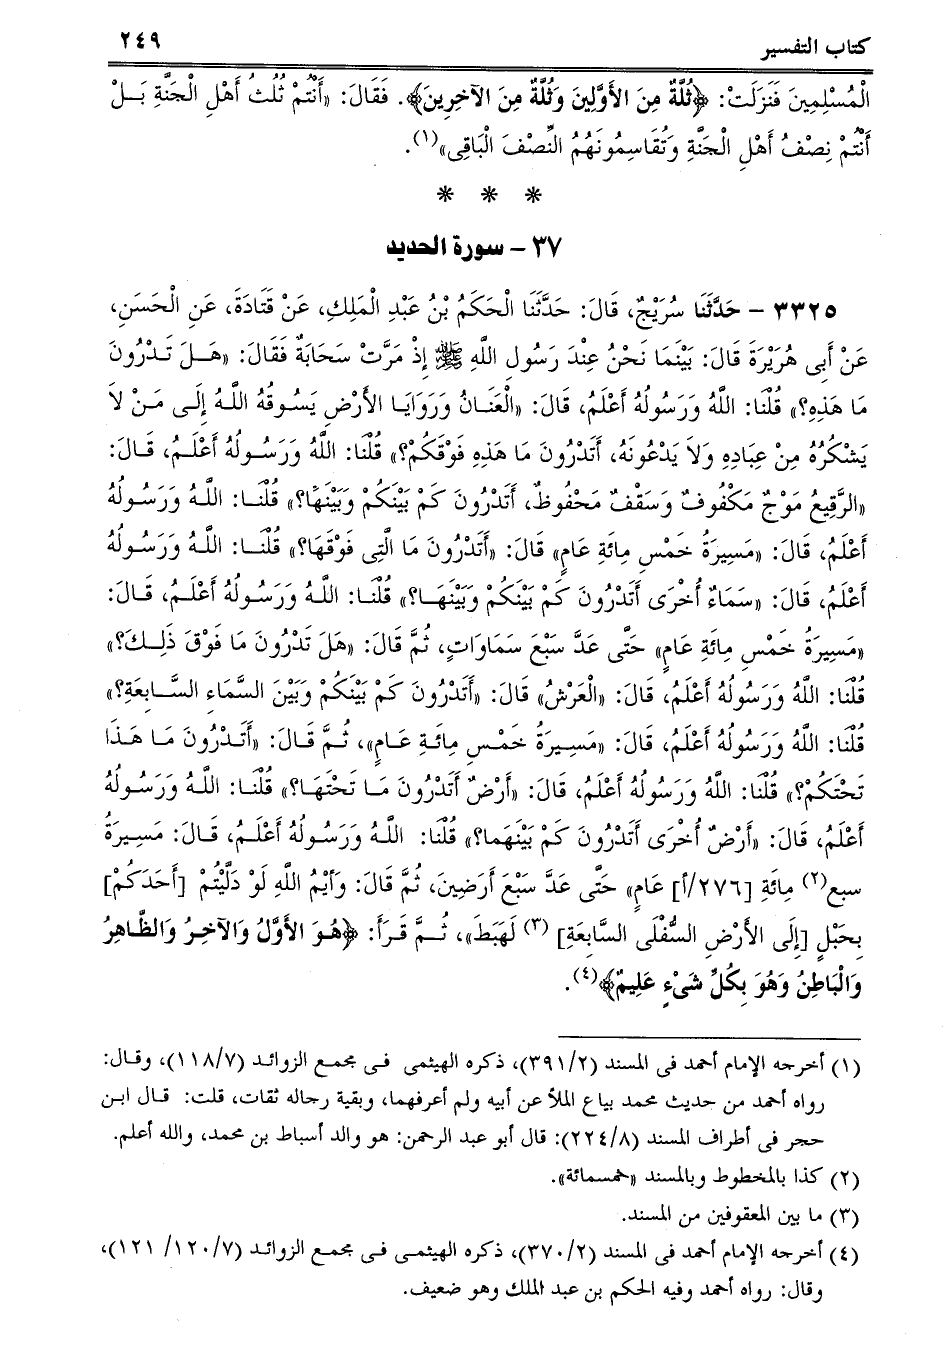 كتاب التفسير ٢٤٩
الْمُسْلِمِينَ فَنَزَلَتْ: ﴿ثُلَّةٌ مِنَ الأَوَّلِينَ وَثُلَّةٌ مِنَ الآخِرِينَ﴾. فَقَالَ: «أَنْتُمْ ثُلُثُ أَهْلِ الْجَنَّةِ بَلْ
أَنْتُمْ نِصْفُ أَهْلِ الْجَنَّةِ وَتُقَاسِمُونَهُمُ النِّصْفَ الْبَاقِى»(١).
* * *
٣٧ - سورة الحديد
٣٣٢٥ - حَدَّثَنَا سُرَيْجٌ، قَالَ: حَدَّثَنَا الْحَكَمُ بْنُ عَبْدِ الْمَلِكِ، عَنْ قَتَادَةَ، عَنِ الْحَسَنِ،
عَنْ أَبِى هُرَيْرَةَ قَالَ: بَيْنَمَا نَحْنُ عِنْدَ رَسُولِ اللَّهِ ﷺ إِذْ مَرَّتْ سَحَابَةٌ فَقَالَ: «هَلْ تَدْرُونَ
مَا هَذِهِ؟» قُلْنَا: اللَّهُ وَرَسُولُهُ أَعْلَمُ، قَالَ: «الْعَنَانُ وَرَوَايَا الأَرْضِ يَسُوقُهُ اللَّهُ إِلَى مَنْ لاَ
يَشْكُرُهُ مِنْ عِبَادِهِ وَلاَ يَدْعُونَهُ، أَتَدْرُونَ مَا هَذِهِ فَوْقَكُمْ؟» قُلْنَا: اللَّهُ وَرَسُولُهُ أَعْلَمُ، قَالَ:
«الرَّقِيعُ مَوْجٌ مَكْفُوفٌ وَسَقْفٌ مَحْفُوظٌ، أَتَدْرُونَ كَمْ بَيْنَكُمْ وَبَيْنَهَا؟» قُلْنَا: اللَّهُ وَرَسُولُهُ
أَعْلَمُ، قَالَ: «مَسِيرَةُ خَمْسِ مِائَةِ عَامٍ» قَالَ: «أَتَدْرُونَ مَا الَّتِى فَوْقَهَا؟» قُلْنَا: اللَّهُ وَرَسُولُهُ
أَعْلَمُ، قَالَ: «سَمَاءٌ أُخْرَى أَتَدْرُونَ كَمْ بَيْنَكُمْ وَبَيْنَهَا؟» قُلْنَا: اللَّهُ وَرَسُولُهُ أَعْلَمُ، قَالَ:
«مَسِيرَةُ خَمْسِ مِائَةِ عَامٍ» حَتَّى عَدَّ سَبْعَ سَمَاوَاتٍ، ثُمَّ قَالَ: «هَلْ تَدْرُونَ مَا فَوْقَ ذَلِكَ؟»
قُلْنَا: اللَّهُ وَرَسُولُهُ أَعْلَمُ، قَالَ: «الْعَرْشُ» قَالَ: «أَتَدْرُونَ كَمْ بَيْنَكُمْ وَبَيْنَ السَّمَاءِ السَّابِعَةِ؟»
قُلْنَا: اللَّهُ وَرَسُولُهُ أَعْلَمُ، قَالَ: «مَسِيرَةُ خَمْسِ مِائَةِ عَامٍ»، ثُمَّ قَالَ: «أَتَدْرُونَ مَا هَذَا
تَحْتَكُمْ؟» قُلْنَا: اللَّهُ وَرَسُولُهُ أَعْلَمُ، قَالَ: «أَرْضٌ أَتَدْرُونَ مَا تَحْتَهَا؟» قُلْنَا: اللَّهُ وَرَسُولُهُ
أَعْلَمُ، قَالَ: «أَرْضٌ أُخْرَى أَتَدْرُونَ كَمْ بَيْنَهُمَا؟» قُلْنَا: اللَّهُ وَرَسُولُهُ أَعْلَمُ، قَالَ: مَسِيرَةُ
سبع(٢) مِائَةِ [٢٧٦/أ] عَامٍ» حَتَّى عَدَّ سَبْعَ أَرَضِينَ، ثُمَّ قَالَ: وَأَيْمُ اللَّهِ لَوْ دَلَّيْتُمْ [أَحَدَكُمْ]
بِحَبْلٍ [إِلَى الأَرْضِ السُّفْلَى السَّابِعَةِ] (٣) لَهَبَطَ»، ثُمَّ قَرَأَ: ﴿هُوَ الأَوَّلُ وَالآخِرُ وَالظَّاهِرُ
وَالْبَاطِنُ وَهُوَ بِكُلِّ شَىْءٍ عَلِيمٌ﴾(٤).
(١) أخرجه الإمام أحمد فى المسند (٣٩١/٢)، ذكره الهيثمى فى مجمع الزوائد (١١٨/٧)، وقال:
رواه أحمد من حديث محمد بياع الملأ عن أبيه ولم أعرفهما، وبقية رجاله ثقات، قلت: قال ابن
حجر فى أطراف المسند (٢٢٤/٨): قال أبو عبد الرحمن: هو والد أسباط بن محمد، والله أعلم.
(٢) كذا بالمخطوط وبالمسند «خمسمائة».
(٣) ما بين المعقوفين من المسند.
(٤) أخرجه الإمام أحمد فى المسند (٣٧٠/٢)، ذكره الهيثمى فى مجمع الزوائد (١٢٠/٧/ ١٢١)،
وقال: رواه أحمد وفيه الحكم بن عبد الملك وهو ضعيف.